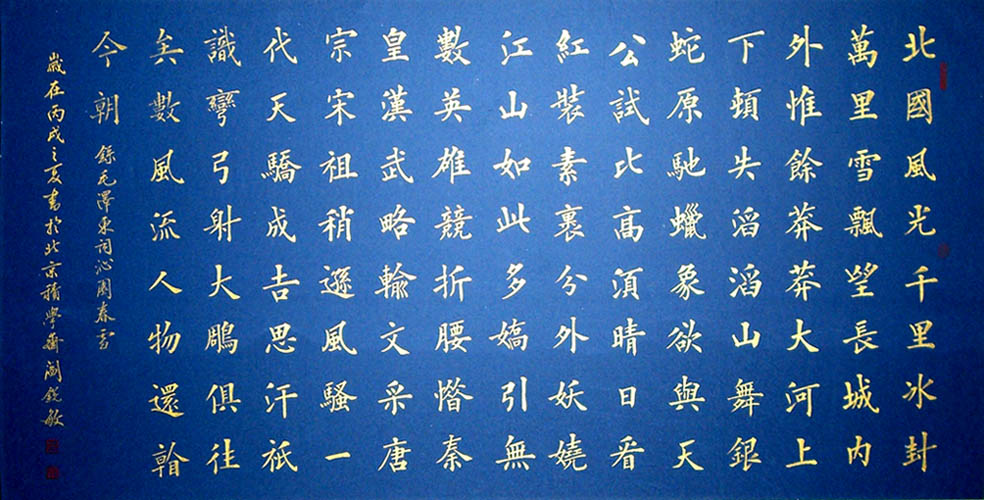 北國風光千里冰封
萬里雪飄望長城內
外惟餘莽莽大河上
下頓失滔滔山舞銀
蛇原馳蠟象欲與天
公試比高須晴日看
紅裝素裹分外妖嬈
江山如此多嬌引無
數英雄競折腰惜秦
皇漢武略輸文采唐
宗宋祖稍遜風騷一
代天驕成吉思汗祇
識彎弓射大鵰俱往
矣數風流人物還看
今朝
錄毛澤東詞沁園春雪
歲在丙戌之夏書於北京積學齋